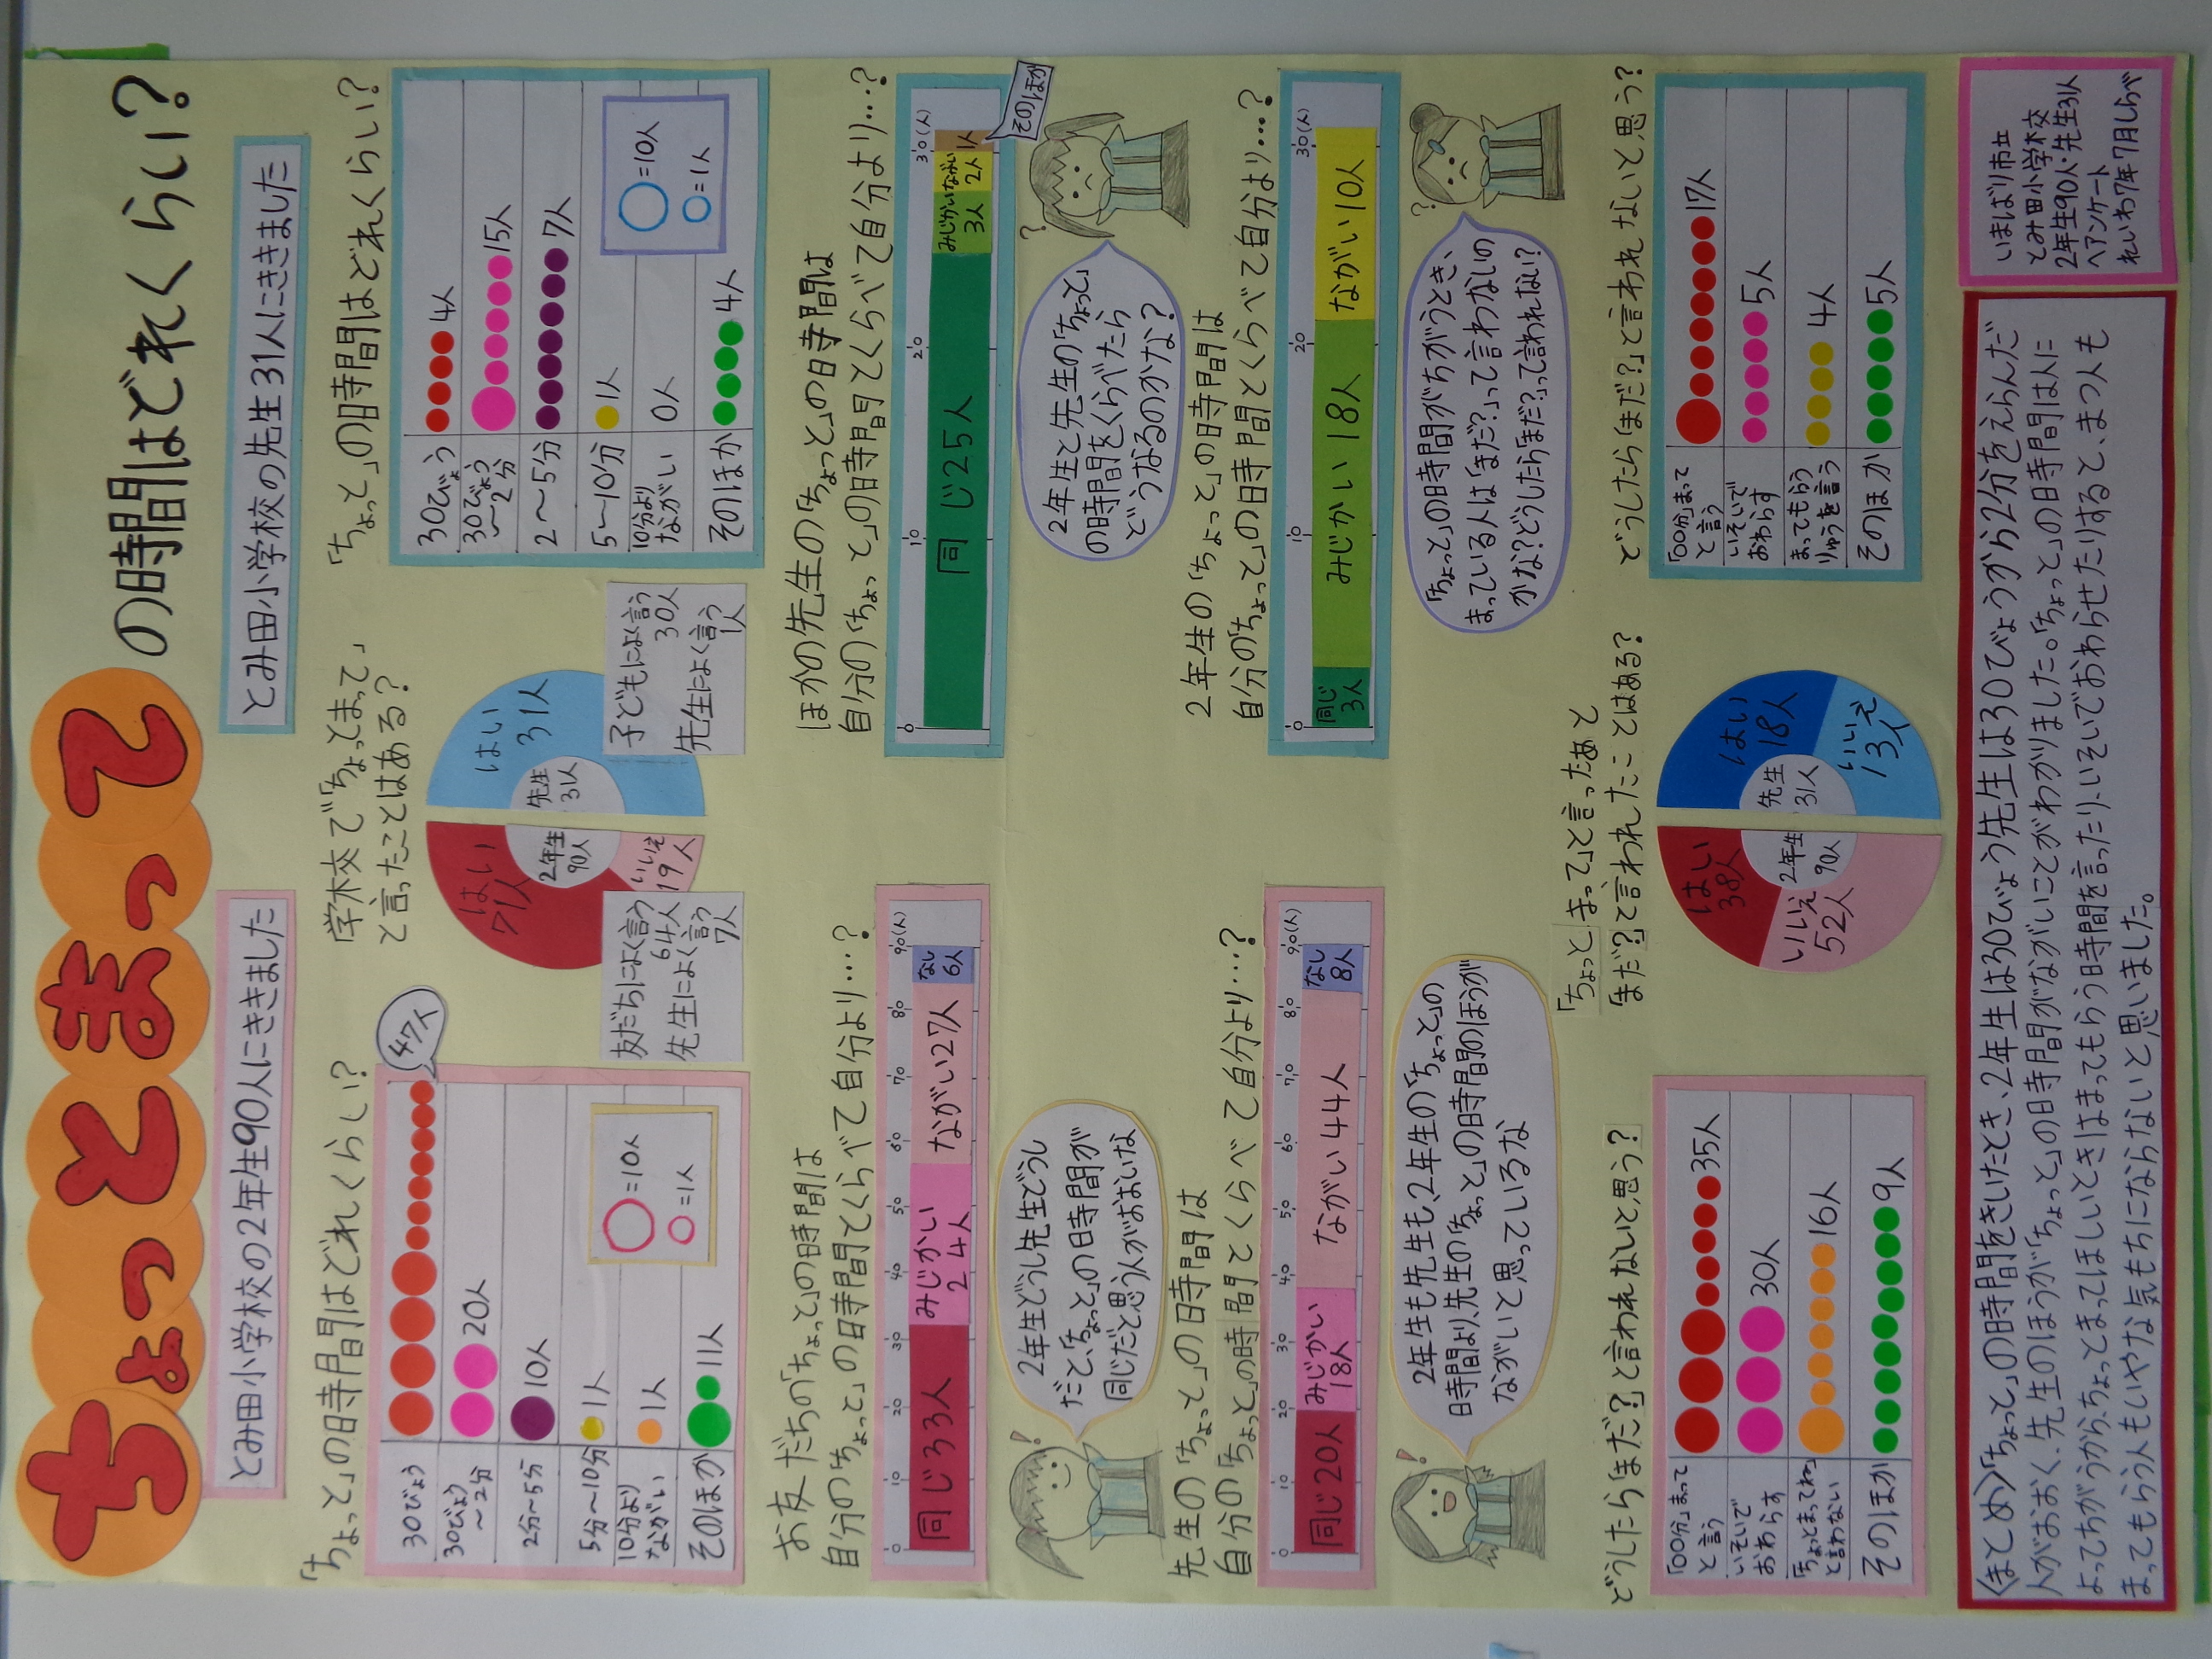 ちょっとまって の時間はどれくらい?
とみ田小学校の2年生90人にききました
とみ田小学校の先生31人にききました
「ちょっと」の時間はどれくらい?
47人
30びょう
30びょう
〜2分
20人
2分〜5分
10人
5分〜10分
1人
10分より
ながい
1人
そのほか
11人
=10人
=1人
学校で「ちょっとまって」
と言ったことはある?
はい
71人
いいえ
19人
2年生
90人
友だちによく言う
64人
先生によく言う
7人
はい
31人
先生
31人
子どもによく言う
30人
先生によく言う
1人
「ちょっと」の時間はどれくらい?
30びょう
4人
30びょう
〜2分
15人
2〜5分
7人
5〜10分
1人
10分より
ながい
0人
そのほか
4人
=10人
=1人
お友だちの「ちょっと」の時間は
自分の「ちょっと」の時間とくらべて自分より…?
0 10 20 30 40 50 60 70 80 90(人)
同じ33人
みじかい
24人
ながい27人
なし
6人
ほかの先生の「ちょっと」の時間は
自分の「ちょっと」の時間とくらべて自分より…?
0 10 20 30(人)
同じ25人
みじかい
3人
ながい
2人
1人
そのほか
2年生どうし先生どうし
だと、「ちょっと」の時間が
同じだと思う人がおおいな
!
2年生と先生の「ちょっと」
の時間をくらべたら
どうなるのかな?
?
先生の「ちょっと」の時間は
自分の「ちょっと」の時間とくらべて自分より…?
0 10 20 30 40 50 60 70 80 90(人)
同じ20人
みじかい
18人
ながい44人
なし
8人
2年生の「ちょっと」の時間は
自分の「ちょっと」の時間とくらべて自分より…?
0 10 20 30(人)
同じ
3人
みじかい18人
ながい10人
2年生も先生も、2年生の「ちょっと」の
時間より、先生の「ちょっと」の時間のほうが
ながいと思っているな
!
「ちょっと」の時間がちがうとき、
まっている人は「まだ?」って言わないの
かな?どうしたら「まだ?」って言われない?
?
どうしたら「まだ?」と言われないと思う?
「〇〇分」まって
と言う
35人
いそいで
おわらす
30人
「ちょっとまってね」
と言わない
16人
そのほか
9人
「ちょっとまって」と言ったあと
「まだ?」と言われたことはある?
はい
38人
いいえ
52人
2年生
90人
はい
18人
いいえ
13人
先生
31人
どうしたら「まだ?」と言われないと思う?
「〇〇分」まって
と言う
17人
いそいで
おわらす
5人
まってもらう
りゆうを言う
4人
そのほか
5人
〈まとめ〉「ちょっと」の時間をきいたとき、2年生は30びょう先生は30びょうから2分をえらんだ
人がおおく、先生のほうが「ちょっと」の時間がながいことがわかりました。「ちょっと」の時間は人に
よってちがうから、ちょっとまってほしいときはまってもらう時間を言ったり、いそいでおわらせたりすると、まつ人も
まってもらう人もいやな気もちにならないと思いました。
いまばり市立
とみ田小学校
2年生90人・先生31人
へアンケート
れいわ7年7月しらべ